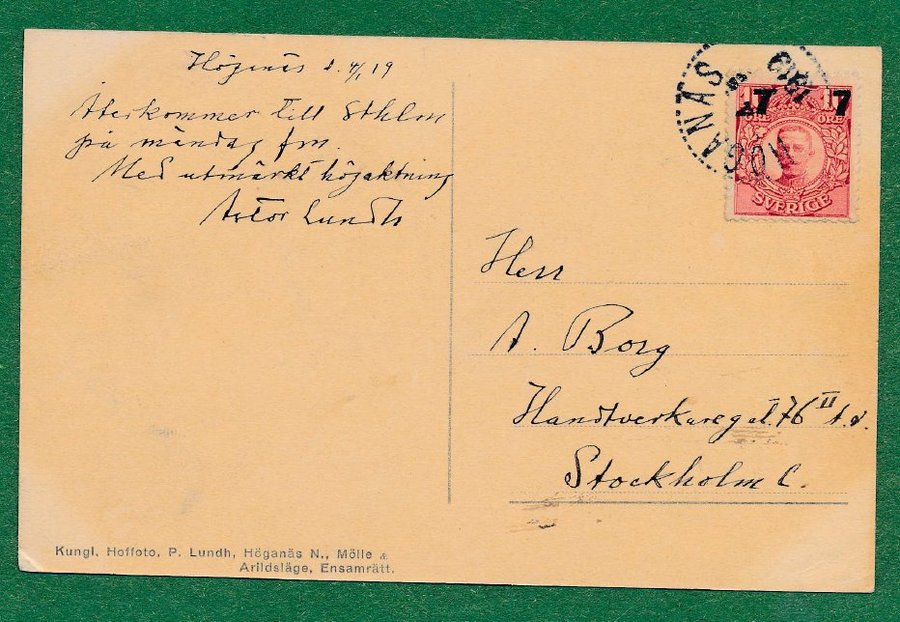 Höganäs d. 4/1 19
Återkommer till Sthlm
på måndag fm.
Med utmärkt högaktning
Lundh
HÖGANÄS
1919
7 7
ÖRE ÖRE
SVERIGE
Herr
A. Borg
Handtverkaregat. 76 II
Stockholm C.
Kungl. Hoffoto, P. Lundh, Höganäs N., Mölle &
Arildsläge, Ensamrätt.